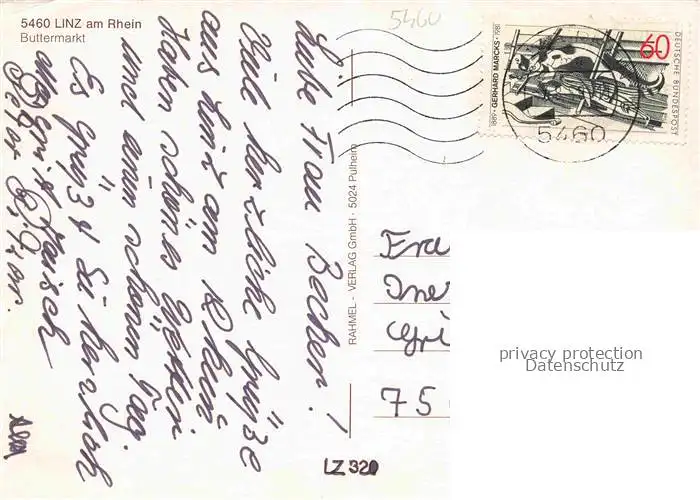 5460 LINZ am Rhein
Buttermarkt
5460
Liebe Frau Becker!
Viele herzliche Grüße
aus Linz am Rhein
Haben schönes Wetter
und einen schönen Tag.
Es grüßt Sie herzlich
RAHMEL - VERLAG GmbH · 5024 Pulheim
LZ 320
1889 · GERHARD MARCKS · 1981
60
DEUTSCHE BUNDESPOST
5460
Fra
75
privacy protection
Datenschutz